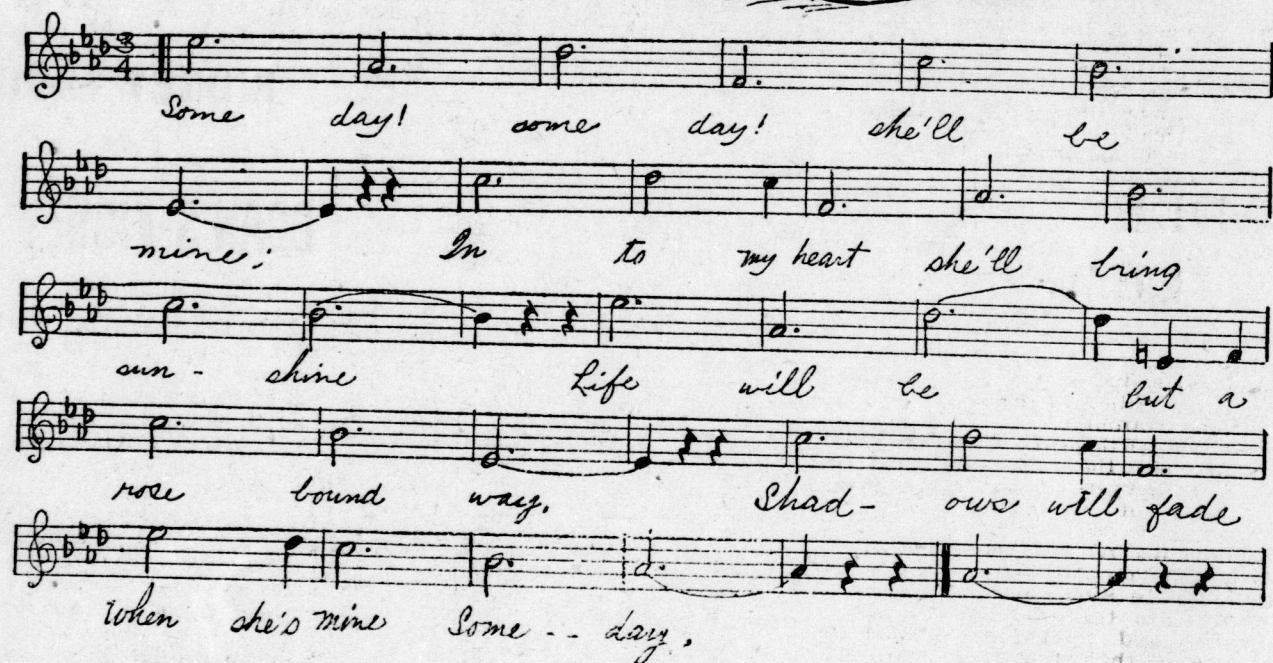 3
4
Some day! some day! she'll be
mine; In to my heart she'll bring
sun - shine Life will be but a
rose bound way. Shad - ows will fade
When she's mine Some -- day.